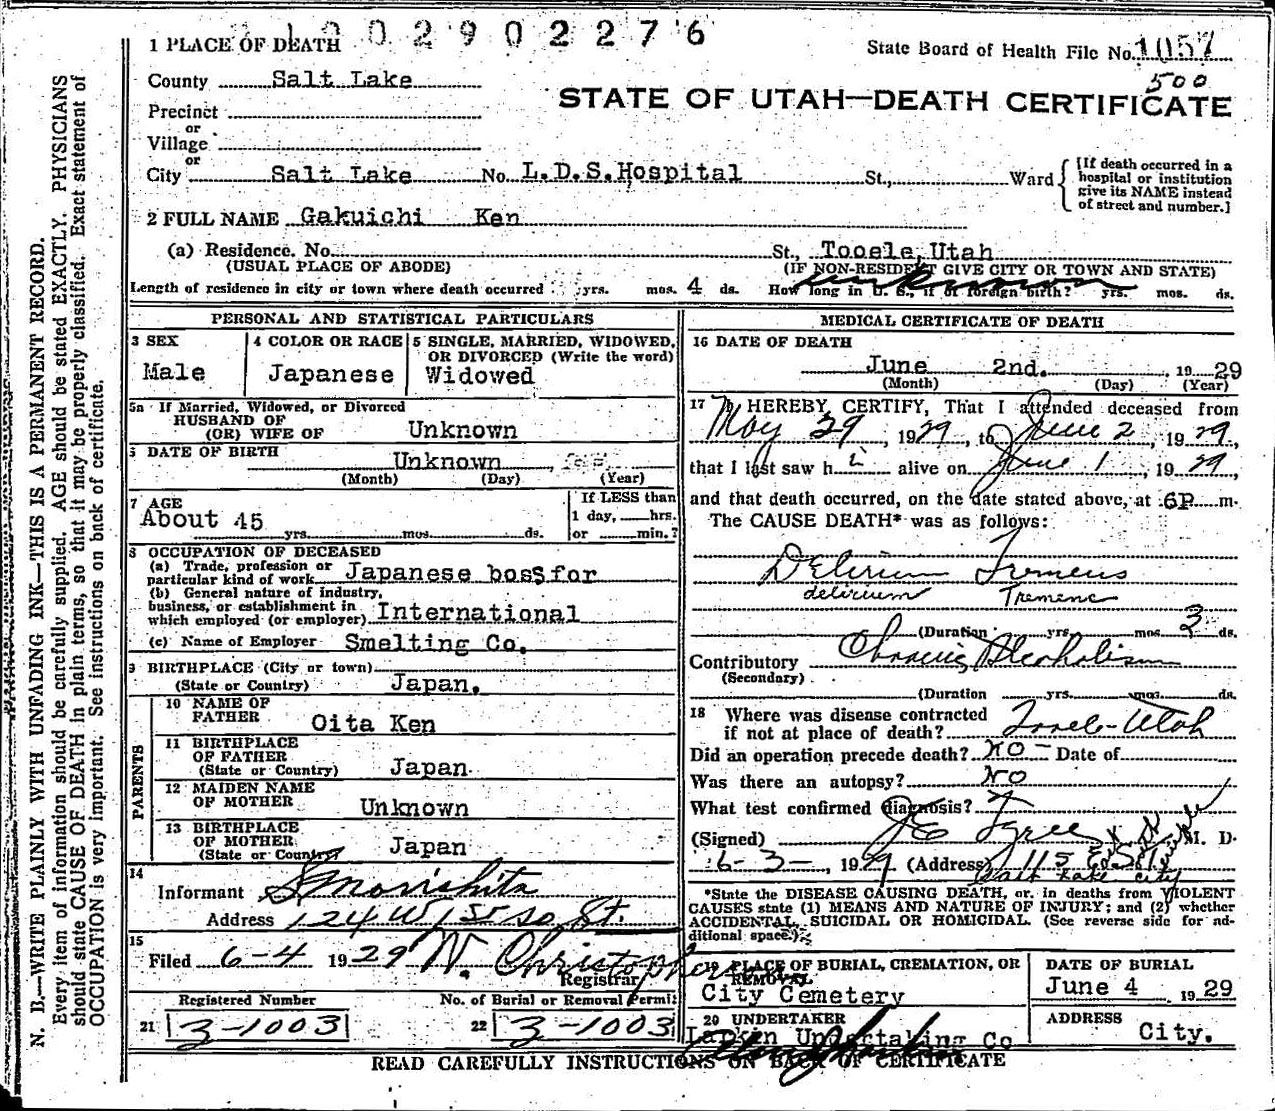 1 0 0 2 9 0 2 2 7 6
1 PLACE OF DEATH
State Board of Health File No. 1057
500
County Salt Lake
STATE OF UTAH—DEATH CERTIFICATE
Precinct
or
Village
or
City Salt Lake No. L.D.S.Hospital St., Ward
[If death occurred in a hospital or institution give its NAME instead of street and number.]
2 FULL NAME Gakuichi Ken
(a) Residence. No. St., Tooele, Utah
(USUAL PLACE OF ABODE) (IF NON-RESIDENT GIVE CITY OR TOWN AND STATE)
Length of residence in city or town where death occurred yrs. mos. 4 ds. How long in U. S., if of foreign birth? unknown yrs. mos. ds.
PERSONAL AND STATISTICAL PARTICULARS
3 SEX
Male
4 COLOR OR RACE
Japanese
5 SINGLE, MARRIED, WIDOWED,
OR DIVORCED (Write the word)
Widowed
5a If Married, Widowed, or Divorced
HUSBAND OF
(OR) WIFE OF Unknown
6 DATE OF BIRTH
Unknown
(Month) (Day) (Year)
7 AGE
About 45
yrs. mos. ds.
If LESS than
1 day, hrs.
or min.?
8 OCCUPATION OF DECEASED
(a) Trade, profession or
particular kind of work Japanese boss for
(b) General nature of industry,
business, or establishment in
which employed (or employer) International
(c) Name of Employer Smelting Co.
9 BIRTHPLACE (City or town)
(State or Country) Japan.
PARENTS
10 NAME OF
FATHER Oita Ken
11 BIRTHPLACE
OF FATHER
(State or Country) Japan
12 MAIDEN NAME
OF MOTHER Unknown
13 BIRTHPLACE
OF MOTHER
(State or Country) Japan
14
Informant S Morishita
Address 124 W 1st So. St.
15
Filed 6-4 1929 W. Christopherson
Registrar
Registered Number No. of Burial or Removal Permit
21 3-1003 22 3-1003
MEDICAL CERTIFICATE OF DEATH
16 DATE OF DEATH
June 2nd. , 1929
(Month) (Day) (Year)
17 I HEREBY CERTIFY, That I attended deceased from
May 29, 1929, to June 2, 1929,
that I last saw h i alive on June 1, 1929
and that death occurred, on the date stated above, at 6P m.
The CAUSE DEATH* was as follows:
Delirium Tremens
delirium Tremens
(Duration yrs. mos. 3 ds.
Contributory Chronic Alcoholism
(Secondary)
(Duration yrs. mos. ds.
18 Where was disease contracted
if not at place of death? Tooele-Utah
Did an operation precede death? No — Date of
Was there an autopsy? No
What test confirmed diagnosis?
(Signed) J E Tyree M. D.
6-3-, 1929 (Address) 115 E So. Temple
Salt Lake City
*State the DISEASE CAUSING DEATH, or, in deaths from VIOLENT
CAUSES state (1) MEANS AND NATURE OF INJURY; and (2) whether
ACCIDENTAL, SUICIDAL OR HOMICIDAL. (See reverse side for ad-
ditional space.)
19 PLACE OF BURIAL, CREMATION, OR
REMOVAL
City Cemetery
DATE OF BURIAL
June 4 1929
20 UNDERTAKER
Larkin Undertaking Co
ADDRESS
City.
READ CAREFULLY INSTRUCTIONS ON BACK OF CERTIFICATE
N. B.—WRITE PLAINLY WITH UNFADING INK—THIS IS A PERMANENT RECORD.
Every item of information should be carefully supplied. AGE should be stated EXACTLY. PHYSICIANS
should state CAUSE OF DEATH in plain terms, so that it may be properly classified. Exact statement of
OCCUPATION is very important. See instructions on back of certificate.